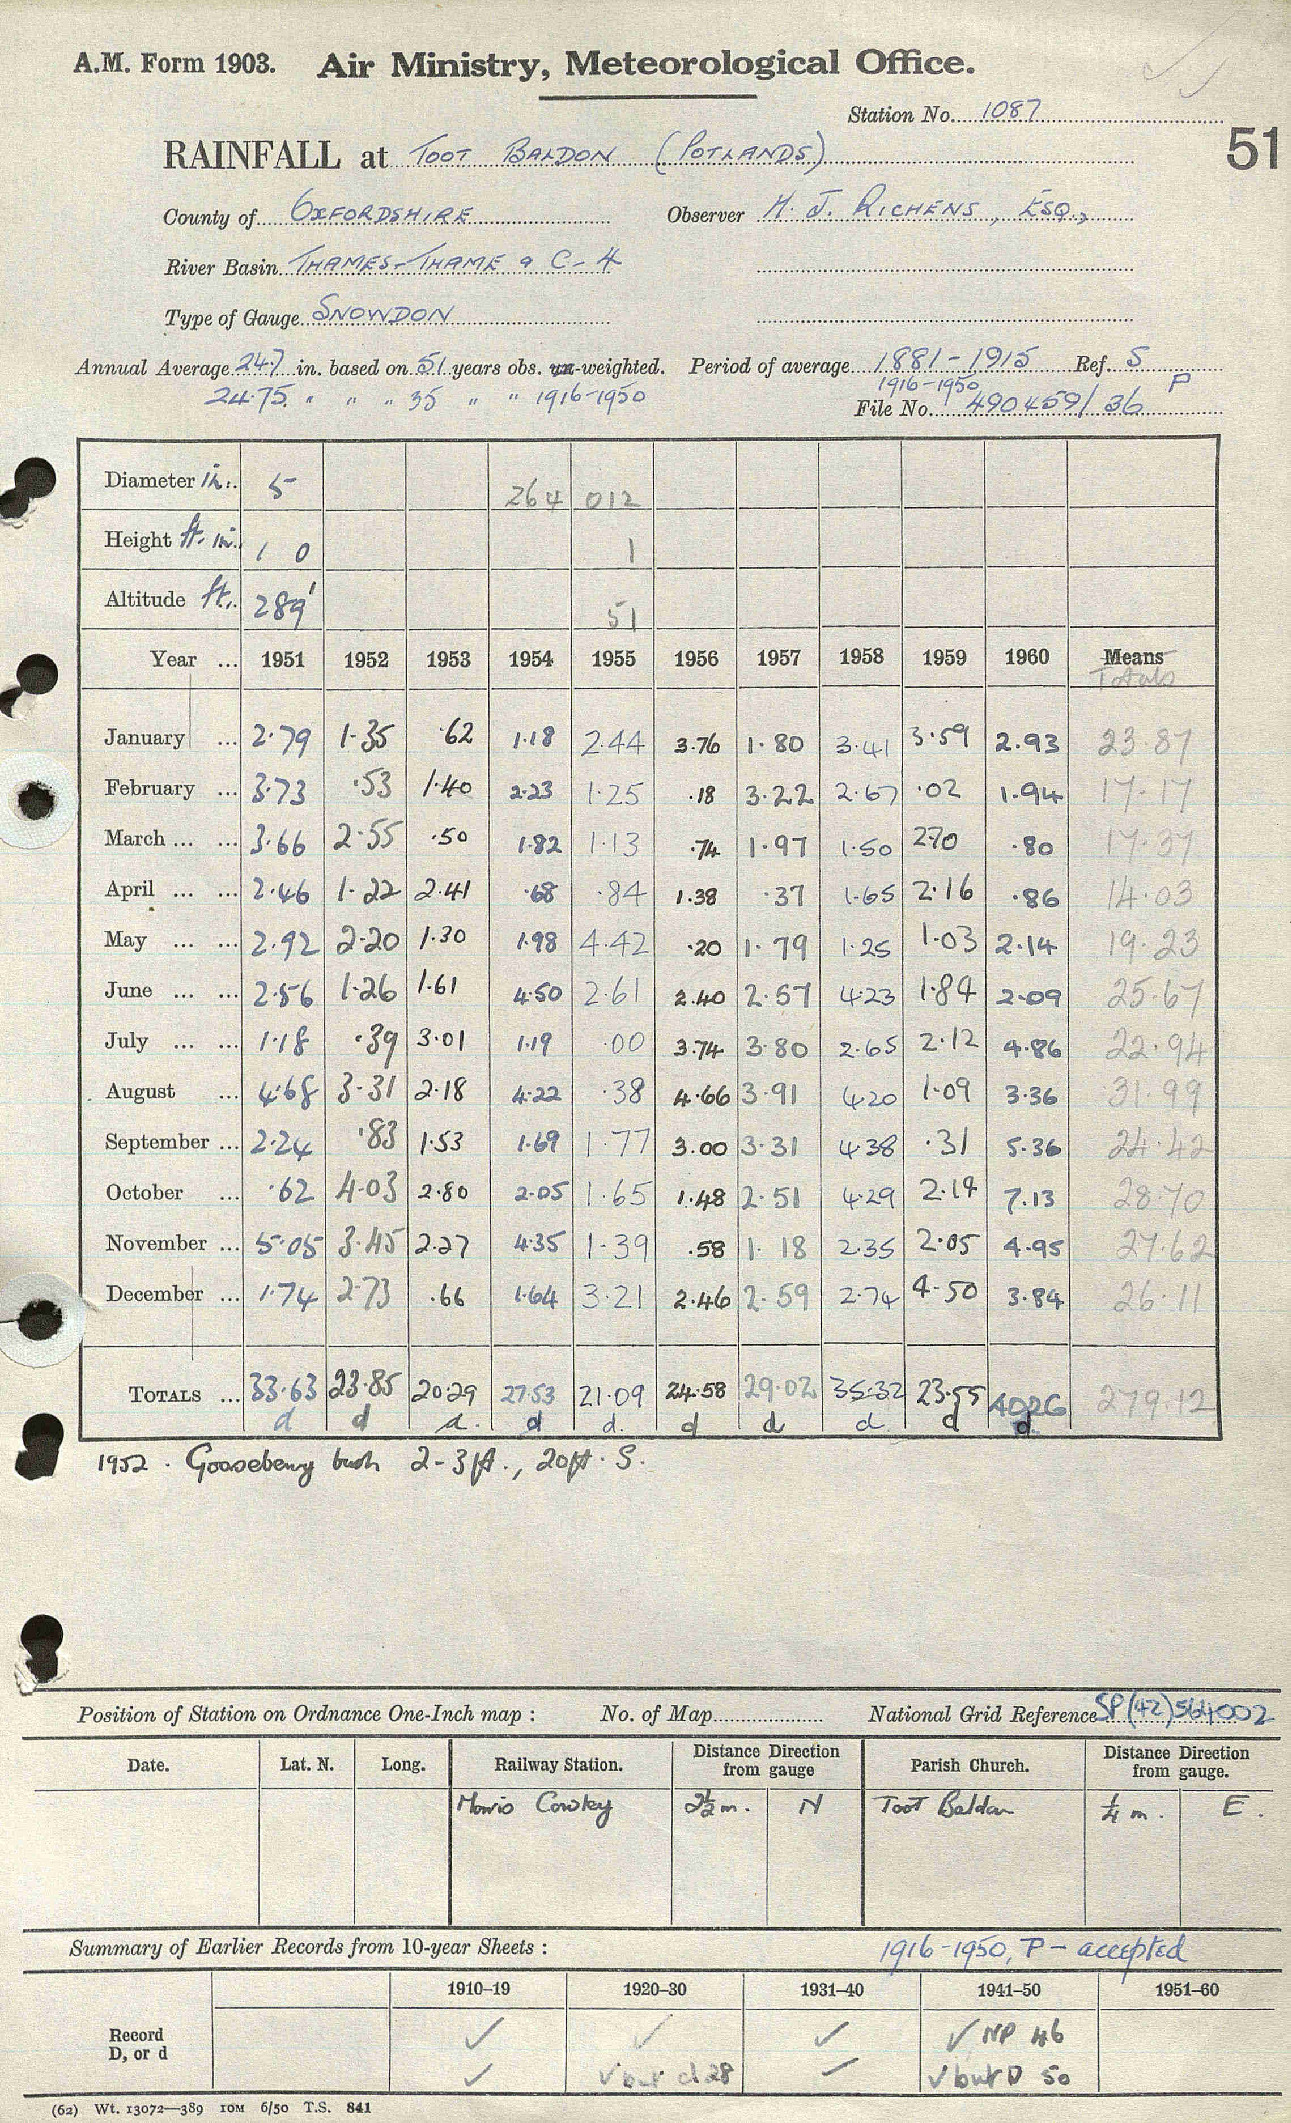 A.M. Form 1903. Air Ministry, Meteorological Office.
Station No. 1087
51
RAINFALL at TOOT BALDON (POTLANDS)
County of OXFORDSHIRE Observer H. J. RICHENS, ESQ.,
River Basin THAMES-THAME a C-4
Type of Gauge SNOWDON
Annual Average 24.7 in. based on 51 years obs. un-weighted. Period of average 1881-1915 Ref. S
24.75 " " " 35 " " 1916-1950 1916-1950 P
File No. 490459/36
Diameter in. 5 264 012
Height ft. in. 1 0 1
Altitude ft. 289' 51
Year ... 1951 1952 1953 1954 1955 1956 1957 1958 1959 1960 Means
Totals
January ... 2.79 1.35 .62 1.18 2.44 3.76 1.80 3.41 3.59 2.93 23.87
February ... 3.73 .53 1.40 2.23 1.25 .18 3.22 2.67 .02 1.94 17.17
March ... ... 3.66 2.55 .50 1.82 1.13 .74 1.97 1.50 2.70 .80 17.37
April ... ... 2.46 1.22 2.41 .68 .84 1.38 .37 1.65 2.16 .86 14.03
May ... ... 2.92 2.20 1.30 1.98 4.42 .20 1.79 1.25 1.03 2.14 19.23
June ... ... 2.56 1.26 1.61 4.50 2.61 2.40 2.57 4.23 1.84 2.09 25.67
July ... ... 1.18 .39 3.01 1.19 .00 3.74 3.80 2.65 2.12 4.86 22.94
August ... 4.68 3.31 2.18 4.22 .38 4.66 3.91 4.20 1.09 3.36 31.99
September ... 2.24 .83 1.53 1.69 1.77 3.00 3.31 4.38 .31 5.36 24.42
October ... .62 4.03 2.80 2.05 1.65 1.48 2.51 4.29 2.14 7.13 28.70
November ... 5.05 3.45 2.27 4.35 1.39 .58 1.18 2.35 2.05 4.95 27.62
December ... 1.74 2.73 .66 1.64 3.21 2.46 2.59 2.74 4.50 3.84 26.11
TOTALS ... 33.63 23.85 20.29 27.53 21.09 24.58 29.02 35.32 23.55 40.26 279.12
d d d. d d. d d d d d
1952. Gooseberry bush 2-3ft., 20ft. S.
Position of Station on Ordnance One-Inch map : No. of Map National Grid Reference SP(42)564002
Date. Lat. N. Long. Railway Station. Distance Direction from gauge Parish Church. Distance Direction from gauge.
Morris Cowley 2½ m. N Toot Baldon ¼ m. E.
Summary of Earlier Records from 10-year Sheets : 1916-1950, P - accepted
1910–19 1920–30 1931–40 1941–50 1951–60
Record D, or d ✓ ✓ ✓ ✓ NP 46
✓ ✓ but d 28 ✓ ✓ but D 50
(62) Wt. 13072—389 10M 6/50 T.S. 841